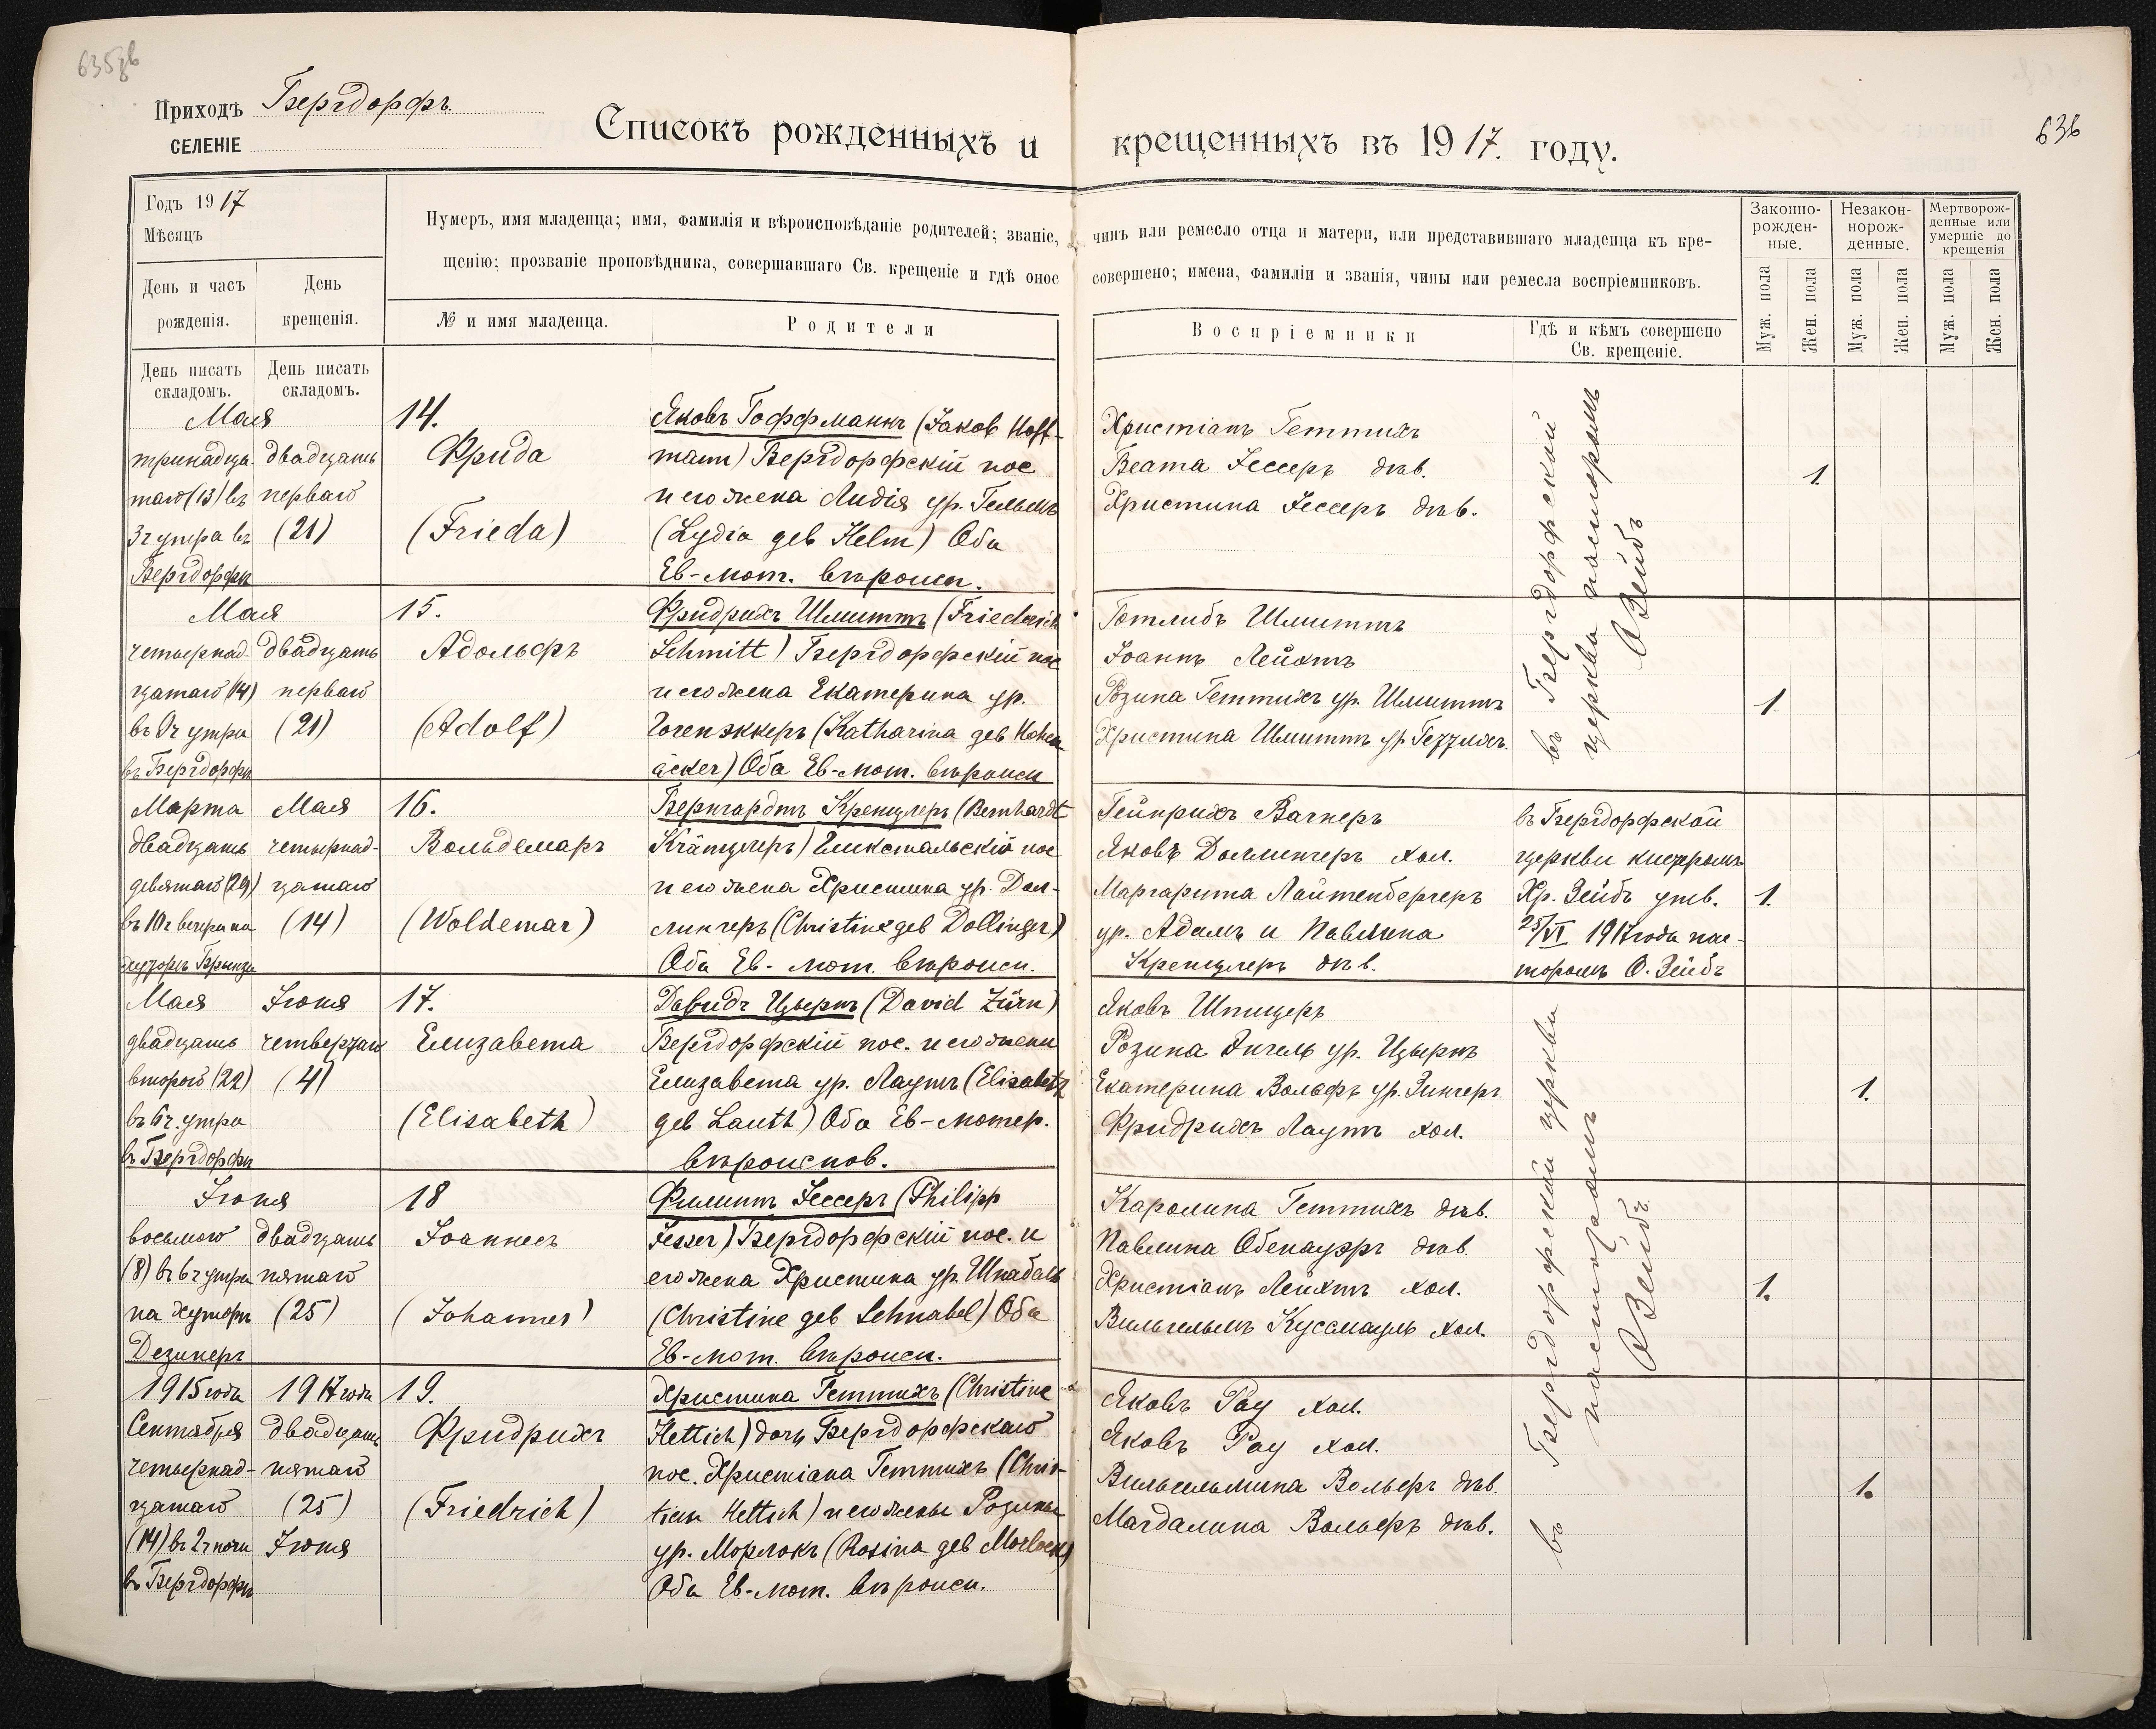 635 об
636
Приходъ Бергдорфъ.
СЕЛЕНІЕ
Списокъ рожденныхъ и крещенныхъ въ 1917. году.
Годъ 1917
Мѣсяцъ
День и часъ рожденія.
День крещенія.
Нумеръ, имя младенца; имя, фамилія и вѣроисповѣданіе родителей; званіе, чинъ или ремесло отца и матери, или представившаго младенца къ кре-
щенію; прозваніе проповѣдника, совершавшаго Св. крещеніе и гдѣ оное совершено; имена, фамиліи и званія, чины или ремесла воспріемниковъ.
№ и имя младенца.
Родители
Воспріемники
Гдѣ и кѣмъ совершено
Св. крещеніе.
Законно-
рожден-
ные.
Незакон-
норож-
денные.
Мертворож-
денные или
умершіе до
крещенія
Муж. пола
Жен. пола
Муж. пола
Жен. пола
Муж. пола
Жен. пола
День писать
складомъ.
День писать
складомъ.
Мая
тринадца-
таго (13) въ
3 ч утра въ
Бергдорфѣ
двадцать
перваго
(21)
14.
Фрида
(Frieda)
Яковъ Гоффманнъ (Jakob Hoff-
mann) Бергдорфскій пос
и его жена Лидія ур. Гельмъ
(Lydia geb Helm) Оба
Ев-лют. вѣроисп.
Христіанъ Геттихъ
Беата Іессеръ дѣв.
Христина Іессеръ дѣв.
1.
въ Бергдорфской
церкви пасторомъ
О Зейбъ
Мая
четырнад-
цатаго (14)
въ 9 ч утра
въ Бергдорфѣ
двадцать
перваго
(21)
15.
Адольфъ
(Adolf)
Фридрихъ Шмиттъ (Friedrich
Schmitt) Бергдорфскій пос
и его жена Екатерина ур.
Гогенэккеръ (Katharina geb Hohen
äcker) Оба Ев-лют. вѣроисп
Готлибъ Шмиттъ
Іоаннъ Лейхтъ
Розина Геттихъ ур. Шмиттъ
Христина Шмиттъ ур. Геттихъ.
1
Марта
двадцать
девятаго (29)
въ 10 ч вечера на
хуторѣ Брынза
Мая
четырнад-
цатаго
(14)
16.
Вольдемаръ
(Woldemar)
Бернгардтъ Кренцлеръ (Bernhardt
Kränцлеръ) Гликстальскій пос
и его жена Христина ур. Дол-
лингеръ (Christine geb Dollinger)
Оба Ев- лют. вѣроисп.
Гейнрихъ Вагнеръ
Яковъ Доллингеръ хол.
Маргарита Лайтенбергеръ
ур. Адамъ и Павлина
Кренцлеръ дѣв.
въ Бергдорфской
церкви кистромъ
Хр. Зейбъ утв.
25/VI 1917 года пас-
торомъ О. Зейбъ
1.
Мая
двадцать
второго (22)
въ 6 ч. утра
въ Бергдорфѣ
Іюня
четвертаго
(4)
17.
Елизавета
(Elisabeth)
Давидъ Цырнъ (David Zürn)
Бергдорфскій пос. и его жена
Елизавета ур. Лаутъ (Elisabeth
geb Lauth) Оба Ев-лютер.
вѣроиспов.
Яковъ Шпицеръ
Розина Энгель ур. Цырнъ
Екатерина Вольфъ ур. Зингеръ.
Фридрихъ Лаутъ хол.
1.
въ Бергдорфской церкви
пасторомъ
О Зейбъ.
Іюня
восьмого
(8) въ 6 ч утра
на хуторѣ
Дезинеръ
двадцать
пятаго
(25)
18
Іоаннесъ
(Johannes)
Филиппъ Іессеръ (Philipp
Jesser) Бергдорфскій пос. и
его жена Христина ур. Шнабель
(Christine geb Schnabel) Оба
Ев-лют. вѣроисп.
Каролина Геттихъ дѣв.
Павлина Обенауэръ дѣв.
Христіанъ Лейхтъ хол.
Вильгельмъ Куссмауль хол.
1.
1915 года
Сентября
четырнад-
цатаго
(14) въ 2 ч ночи
въ Бергдорфѣ
1917 года
двадцать
пятаго
(25)
Іюня
19.
Фридрихъ
(Friedrich)
Христина Геттихъ (Christine
Hettich) дочь Бергдорфскаго
пос. Христіана Геттихъ (Chris-
tian Hettich) и его жены Розины
ур. Морлокъ (Rosina geb Morlock)
Оба Ев-лют. вѣроисп.
Яковъ Рау хол.
Яковъ Рау хол.
Вильгельмина Вольфъ дѣв.
Магдалина Вольфъ дѣв.
1.